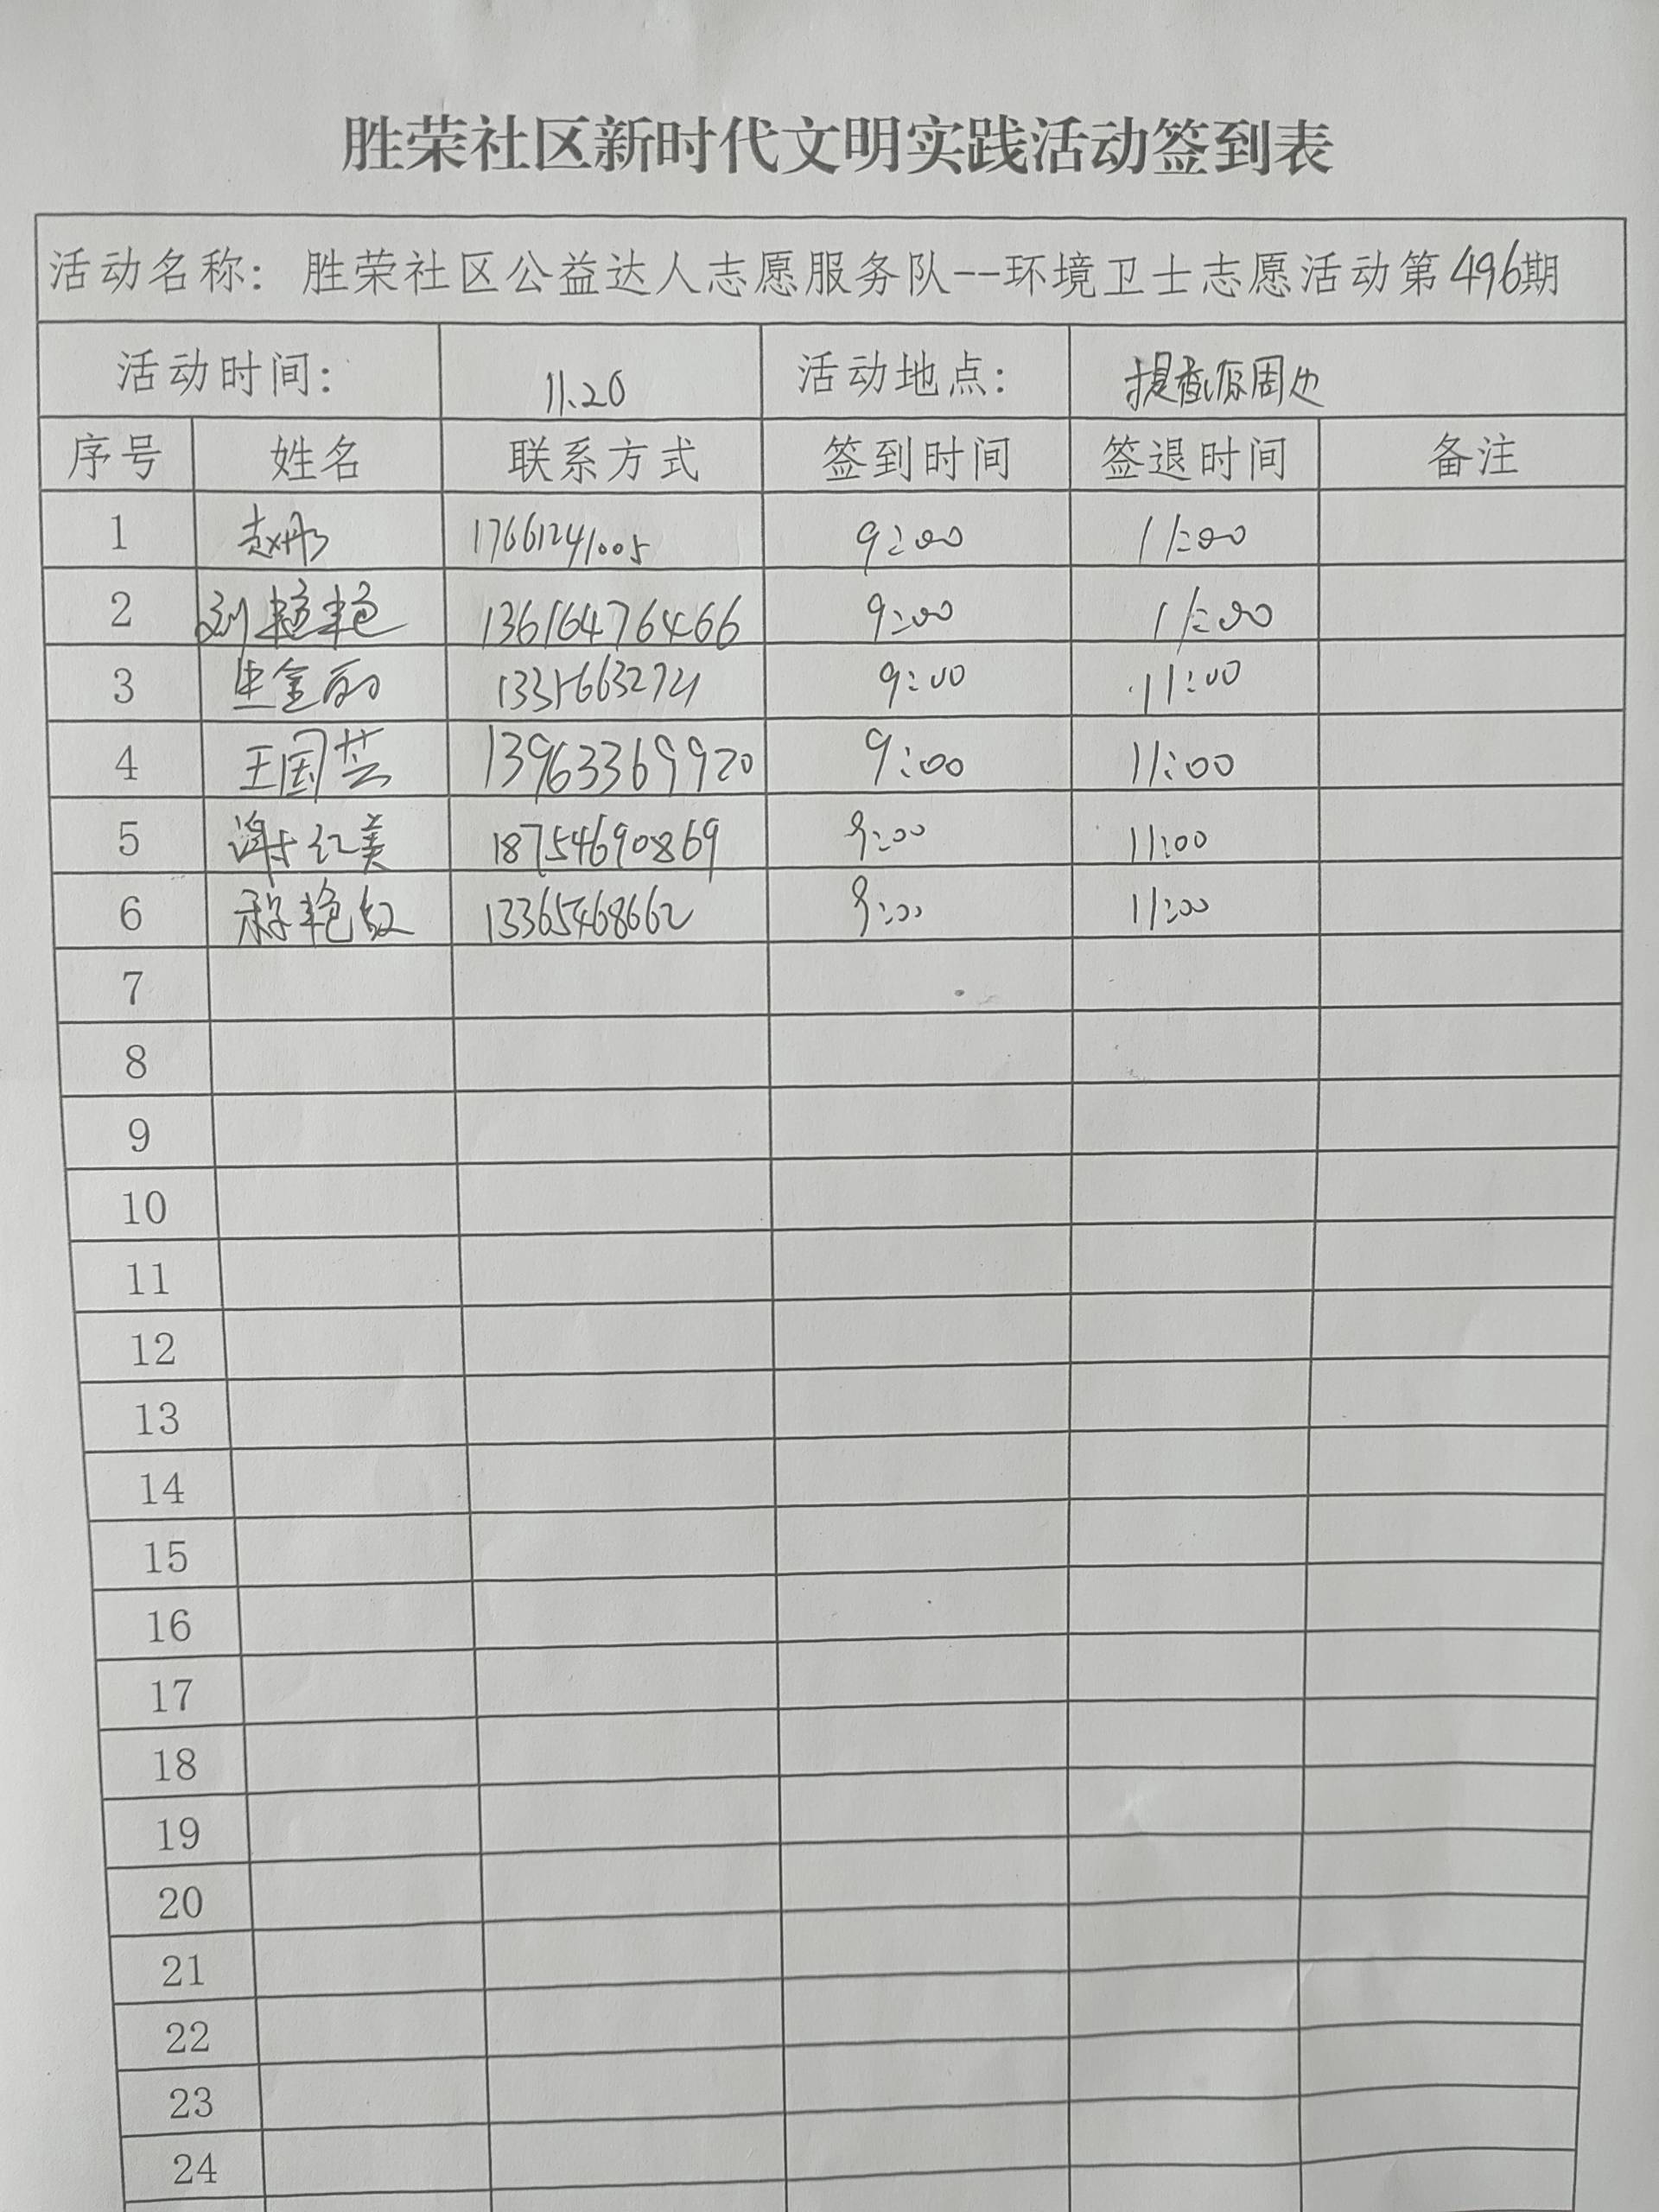 胜荣社区新时代文明实践活动签到表
活动名称：胜荣社区公益达人志愿服务队--环境卫士志愿活动第496期
活动时间： 11.20 活动地点： 周边
序号 姓名 联系方式 签到时间 签退时间 备注
1 赵彤 17661241005 9:00 11:00
2 刘艳艳 13616476466 9:00 11:00
3 9:00 11:00
4 王国芸 13963369920 9:00 11:00
5 谢红美 18754690869 9:00 11:00
6 13365468662 9:00 11:00
7
8
9
10
11
12
13
14
15
16
17
18
19
20
21
22
23
24